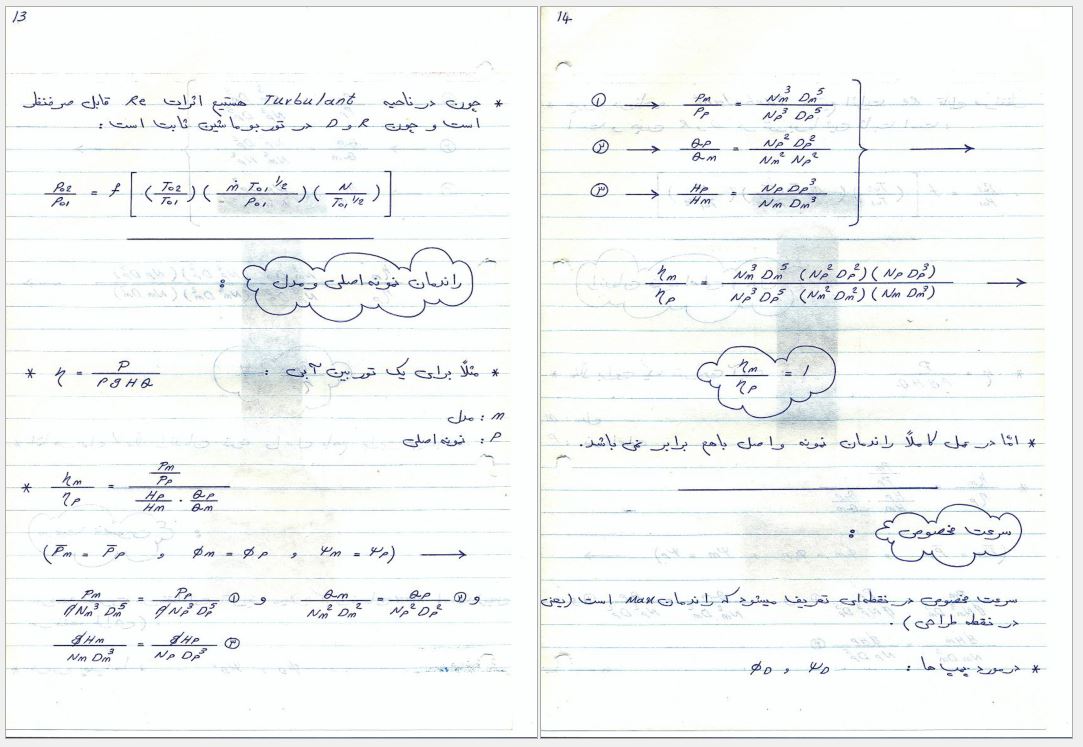 13
* چون در ناحیه Turbulant هستیم اثرات Re قابل صرفنظر
است و چون R و D در توربوماشین ثابت است :
P02/P01 = f [ (T02/T01) (ṁ T01^1/2 / P01) (N / T01^1/2) ]
راندمان نمونه اصلی و مدل :
* مثلاً برای یک توربین آبی : η = P / ρgHQ *
m : مدل
P : نمونه اصلی
* ηm/ηp = (Pm/Pp) / (Hp/Hm · Qp/Qm)
(P̄m = P̄p , φm = φp , ψm = ψp) →
Pm / ρNm^3 Dm^5 = Pp / ρNp^3 Dp^5 ① و Qm / Nm^2 Dm^2 = Qp / Np^2 Dp^2 ② و
gHm / Nm Dm^3 = gHp / Np Dp^3 ③
14
① → Pm/Pp = Nm^3 Dm^5 / Np^3 Dp^5
② → Qp/Qm = Np^2 Dp^2 / Nm^2 Np^2 } →
③ → Hp/Hm = Np Dp^3 / Nm Dm^3
ηm/ηp = Nm^3 Dm^5 (Np^2 Dp^2)(Np Dp^3) / Np^3 Dp^5 (Nm^2 Dm^2)(Nm Dm^3) →
ηm/ηp = 1
* امّا در عمل کاملاً راندمان نمونه و اصل باهم برابر نمی باشد.
سرعت مخصوص :
سرعت مخصوص در نقطه‌ای تعریف میشود که راندمان Max است (یعنی
در نقطه طراحی) .
* درمورد پمپ ها : φD , ψD